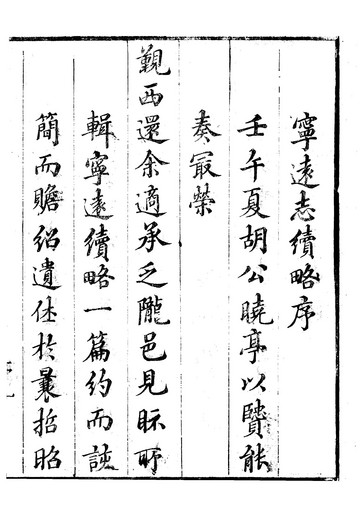 寧遠志續略序
壬午夏胡公曉亭以賢能
奏冣榮
覲西還余適承乏隴邑見眎所
輯寧遠續略一篇約而該
簡而贍紹遺休於曩哲昭